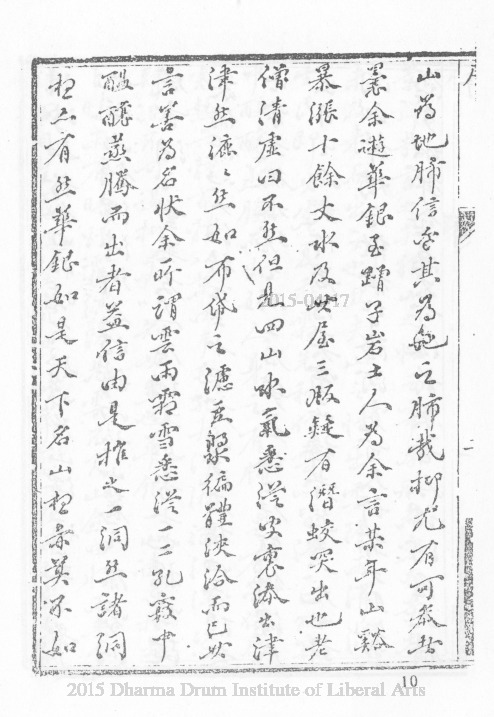 山為地肺信乎其為地之肺哉抑尤有可異者
曩余遊華銀至蹟子岩土人為余言某年山谿
暴漲十餘丈水及此屋三版疑有潛蛟突出也老
僧清虛曰不然但見四山水氣悉從空裏滲出津
津然漉漉然如布帒之濾豆漿徧體浹洽而已此
言善為名狀余所謂雲雨霜雪悉從一二孔竅中
醱醸蒸騰而出者益信由是推之一洞然諸洞
想亦有然華銀如是天下名山想亦莫不如
序
二
2015-04-17
10
2015 Dharma Drum Institute of Liberal Arts